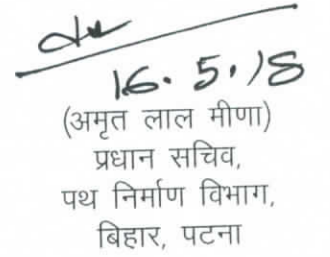 16.5.18
(अमृत लाल मीणा)
प्रधान सचिव,
पथ निर्माण विभाग,
बिहार, पटना